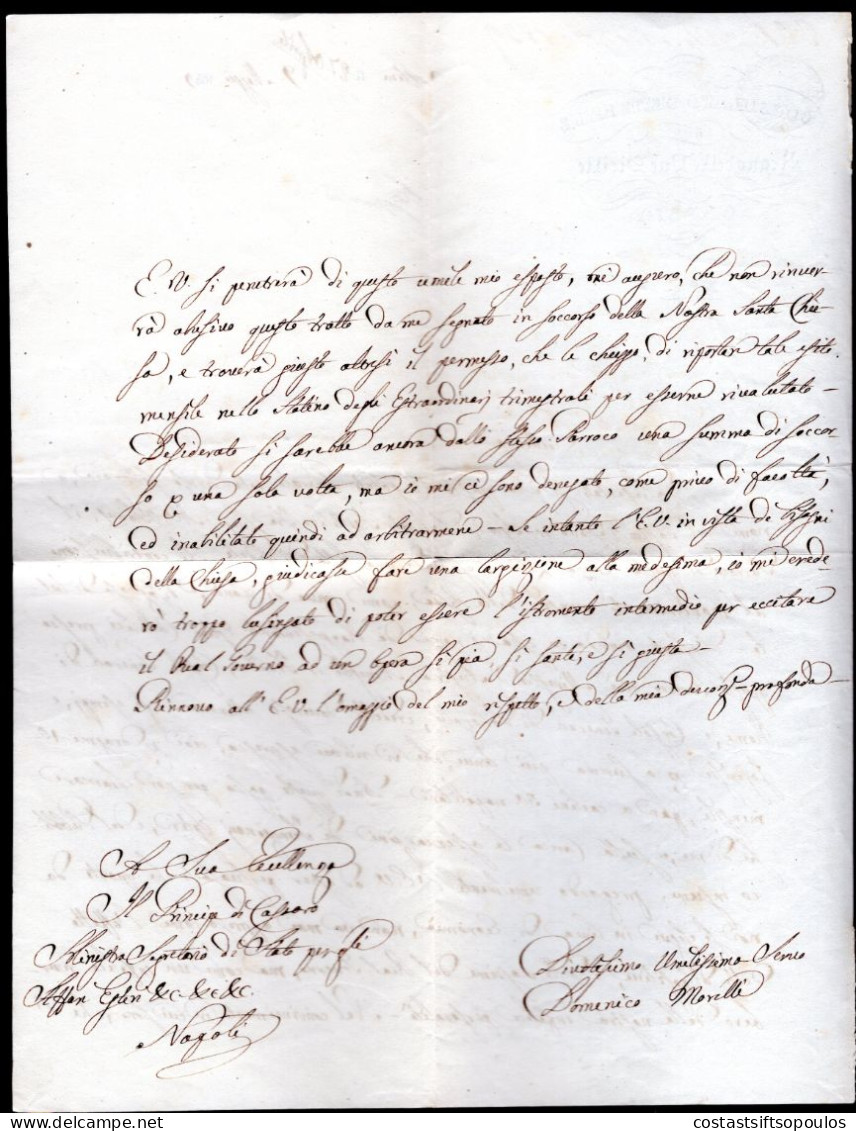 E. V. si penetrerà di questo umile mio esposto, mi auguro, che non rinver-
rà abusivo questo tratto da me segnato in soccorso della Nostra Santa Chie-
sa, e troverà giusto altresì il permesso, che le chieggo, di riportar tale esito
mensile nello Statino degli Estraordinarj trimestrali per esserne rivalutato -
Desiderato si sarebbe ancora dallo stesso Parroco una summa di soccor-
so p una sola volta, ma io mi ci sono denegato, come privo di facoltà,
ed inabilitato quindi ad arbitrarmene - Se intanto l'E. V. in vista de bisogni
della Chiesa, giudicasse fare una largizione alla medesima, io mi crede
rò troppo lusingato di poter essere l'istromento intermedio per eccitare
il Real Governo ad un opera sì pia, sì santa, e sì giusta -
Rinnovo all'E. V. l'omaggio del mio rispetto, e della mia profonda -
A Sua Eccellenza
Il Principe di Cassaro
Ministro Segretario di Stato per gli
Affari Esteri &c. &c. &c.
Napoli
Divotissimo Umilissimo Servo
Domenico Morelli
costastsiftsopoulos